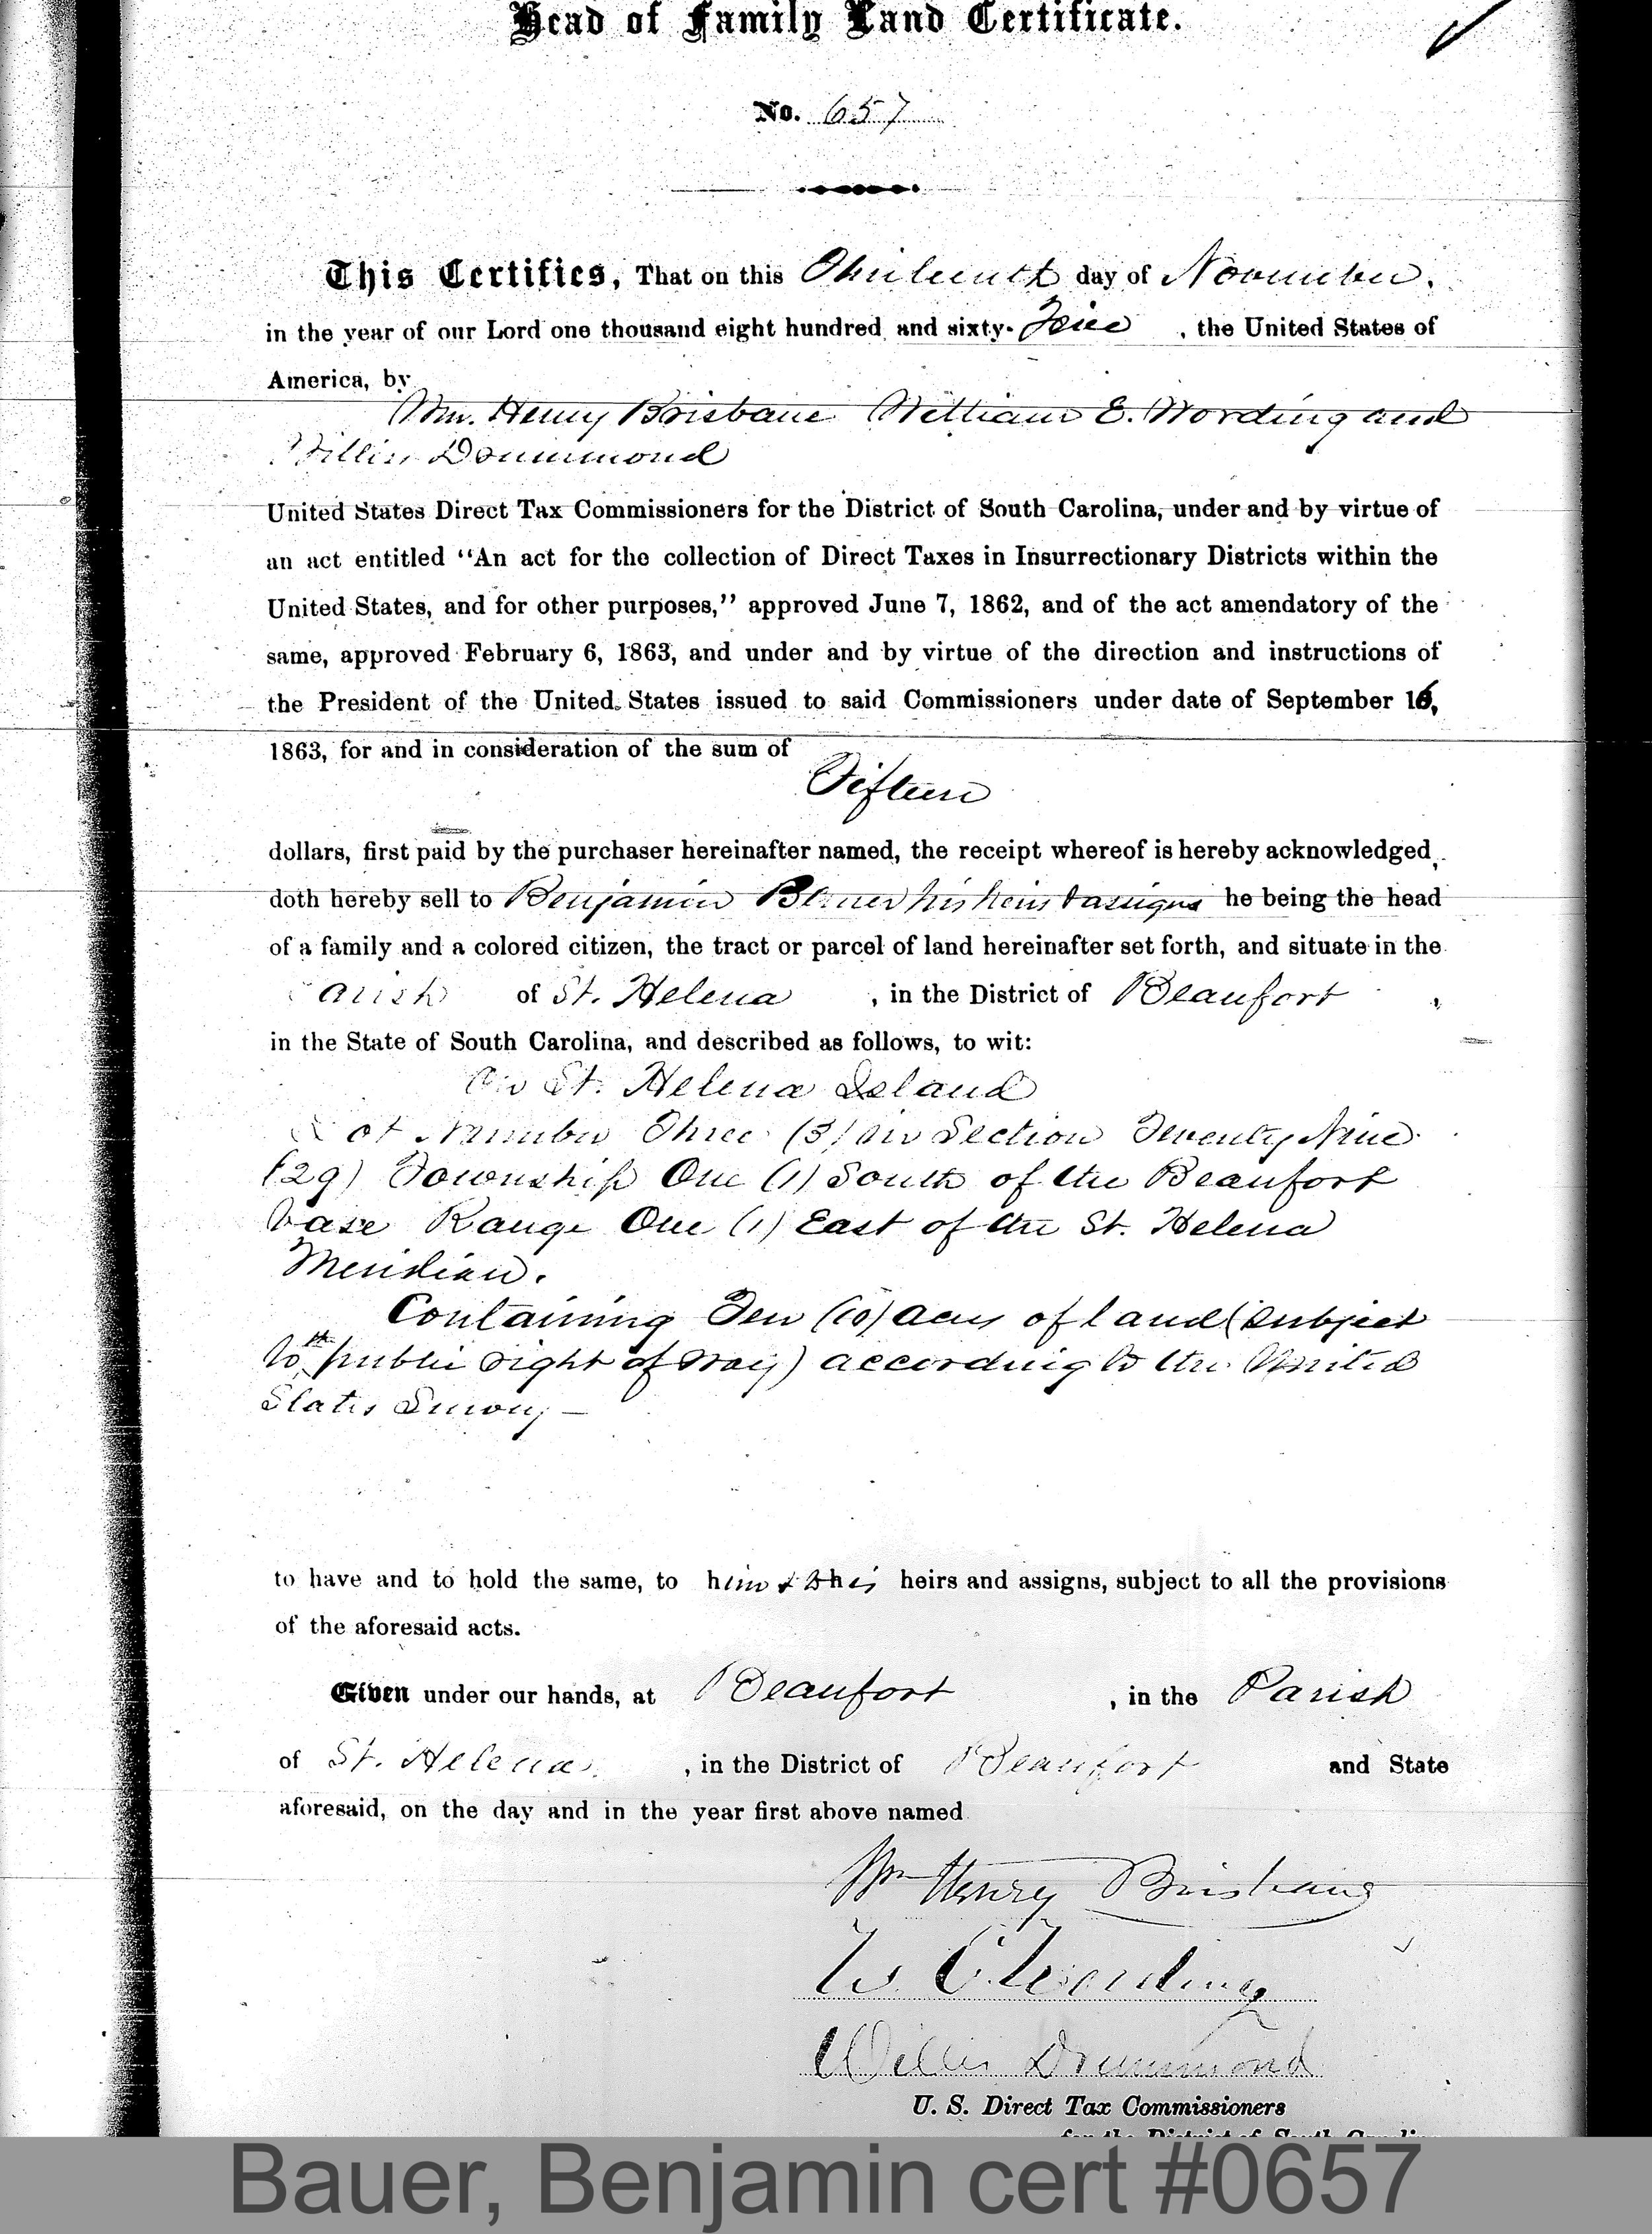 Head of Family Land Certificate.
No. 657
This Certifies, That on this Thirteenth day of November.
in the year of our Lord one thousand eight hundred and sixty-Five, the United States of
America, by
Wm. Henry Brisbane William E. Wording and
Willis Drummond
United States Direct Tax Commissioners for the District of South Carolina, under and by virtue of
an act entitled “An act for the collection of Direct Taxes in Insurrectionary Districts within the
United States, and for other purposes,” approved June 7, 1862, and of the act amendatory of the
same, approved February 6, 1863, and under and by virtue of the direction and instructions of
the President of the United States issued to said Commissioners under date of September 16,
1863, for and in consideration of the sum of
Fifteen
dollars, first paid by the purchaser hereinafter named, the receipt whereof is hereby acknowledged,
doth hereby sell to Benjamin Bauer his heirs & assigns he being the head
of a family and a colored citizen, the tract or parcel of land hereinafter set forth, and situate in the
Parish of St. Helena, in the District of Beaufort,
in the State of South Carolina, and described as follows, to wit:
On St. Helena Island
Lot Number Three (3) in Section Twenty Nine
(29) Township One (1) South of the Beaufort
base Range One (1) East of the St. Helena
Meridian.
Containing Ten (10) acres of land (subject
to the public right of way) according to the United
States Survey —
to have and to hold the same, to him & his heirs and assigns, subject to all the provisions
of the aforesaid acts.
Given under our hands, at Beaufort, in the Parish
of St. Helena, in the District of Beaufort and State
aforesaid, on the day and in the year first above named
Wm Henry Brisbane
W. E. Wording
Willis Drummond
U. S. Direct Tax Commissioners
for the District of South Carolina
Bauer, Benjamin cert #0657